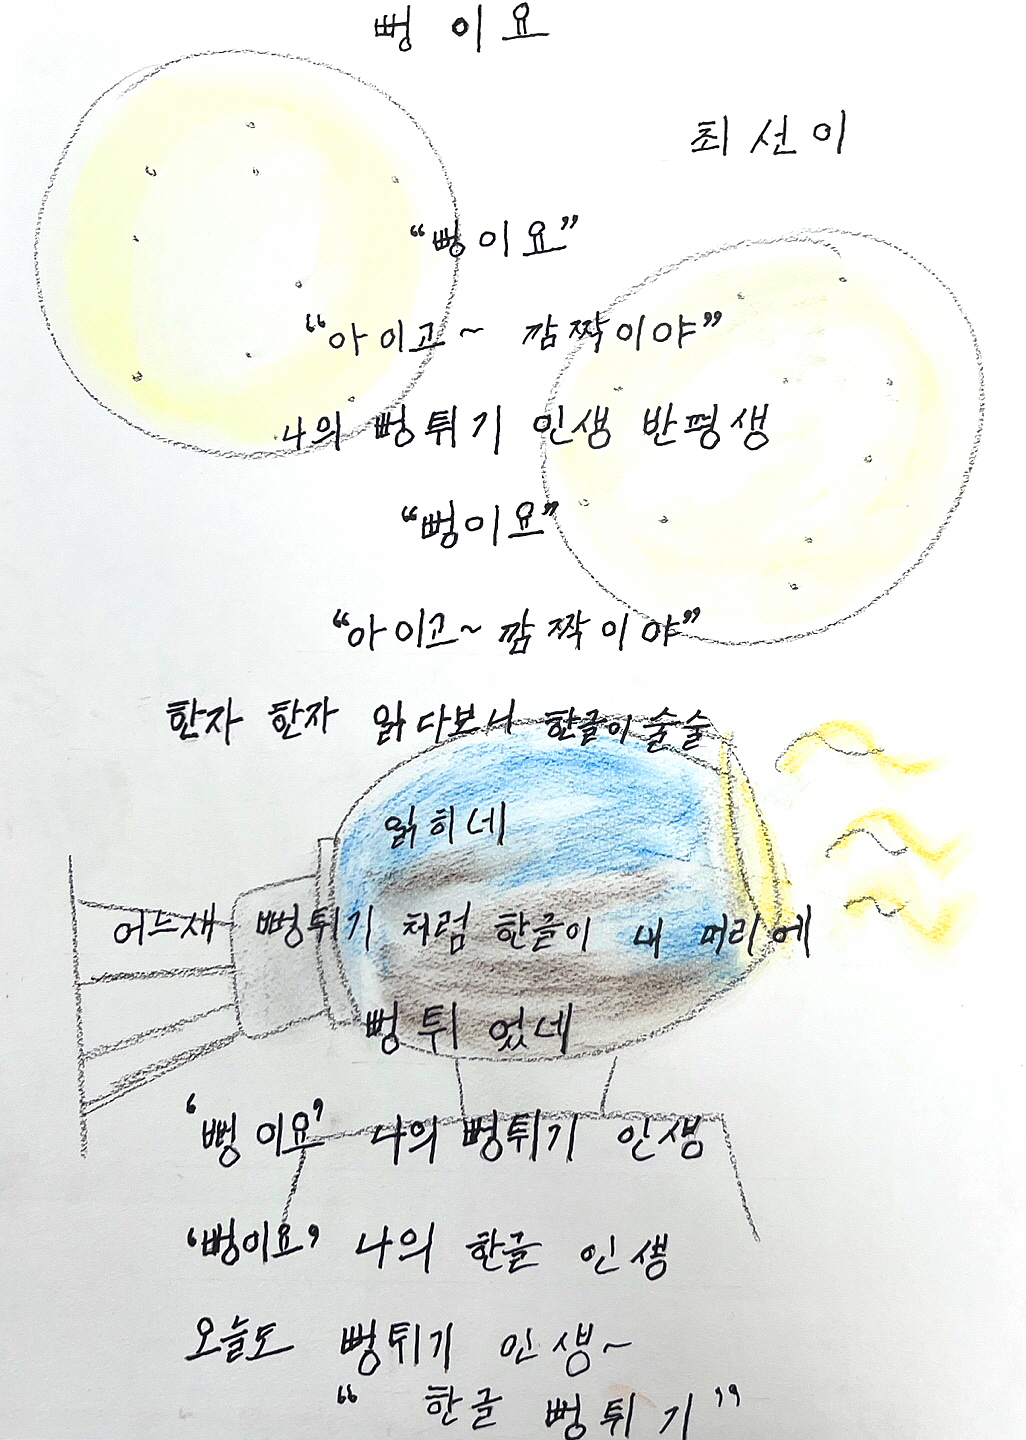 뻥이요
최선이
“뻥이요”
“아이고~ 깜짝이야”
나의 뻥튀기 인생 반평생
“뻥이요”
“아이고~ 깜짝이야”
한자 한자 읽다보니 한글이 술술
읽히네
어느새 뻥튀기 처럼 한글이 내 머리에
뻥튀 었네
‘뻥이요’ 나의 뻥튀기 인생
‘뻥이요’ 나의 한글 인생
오늘도 뻥튀기 인생~
“ 한글 뻥튀기 ”